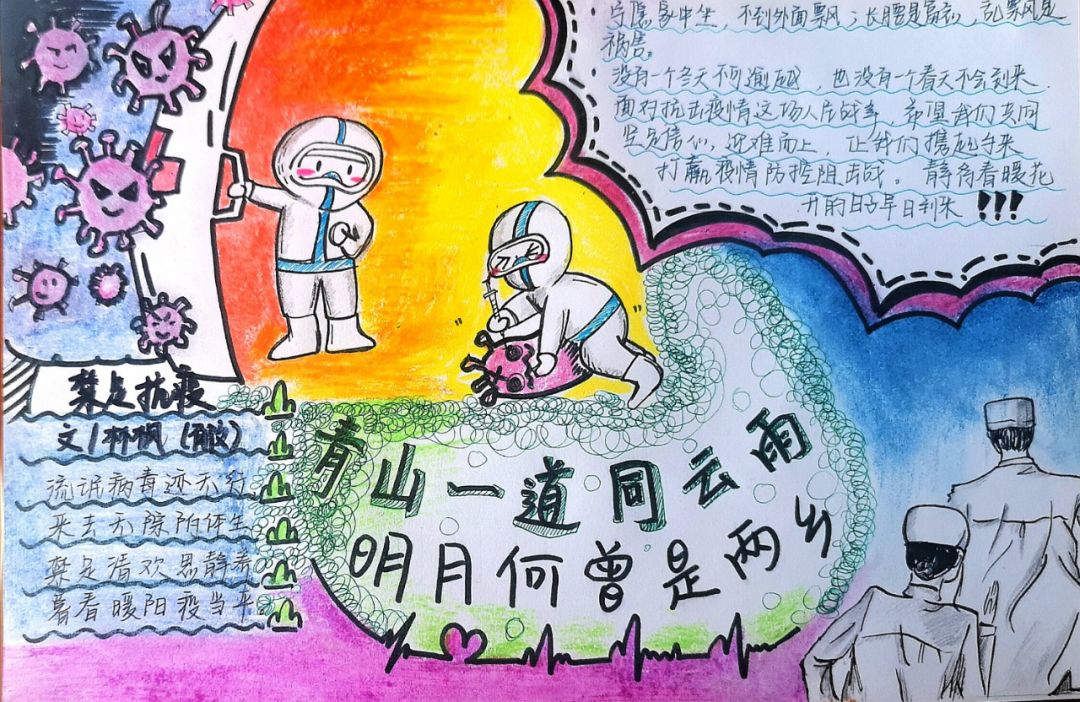 宁愿家中坐，不到外面飘；长腰是富衣，乱飘是
祸害。
没有一个冬天不可逾越，也没有一个春天不会到来.
面对抗击疫情这场人民战争，希望我们共同
坚定信心，迎难而上，让我们携起手来
打赢疫情防控阻击战。静待春暖花
开的日子早日到来!!!
禁足抗疫
文/林枫
流氓病毒迹无行
来去无踪附体生
禁足清欢思静
暮看暖阳疫当平
青山一道同云雨
明月何曾是两乡